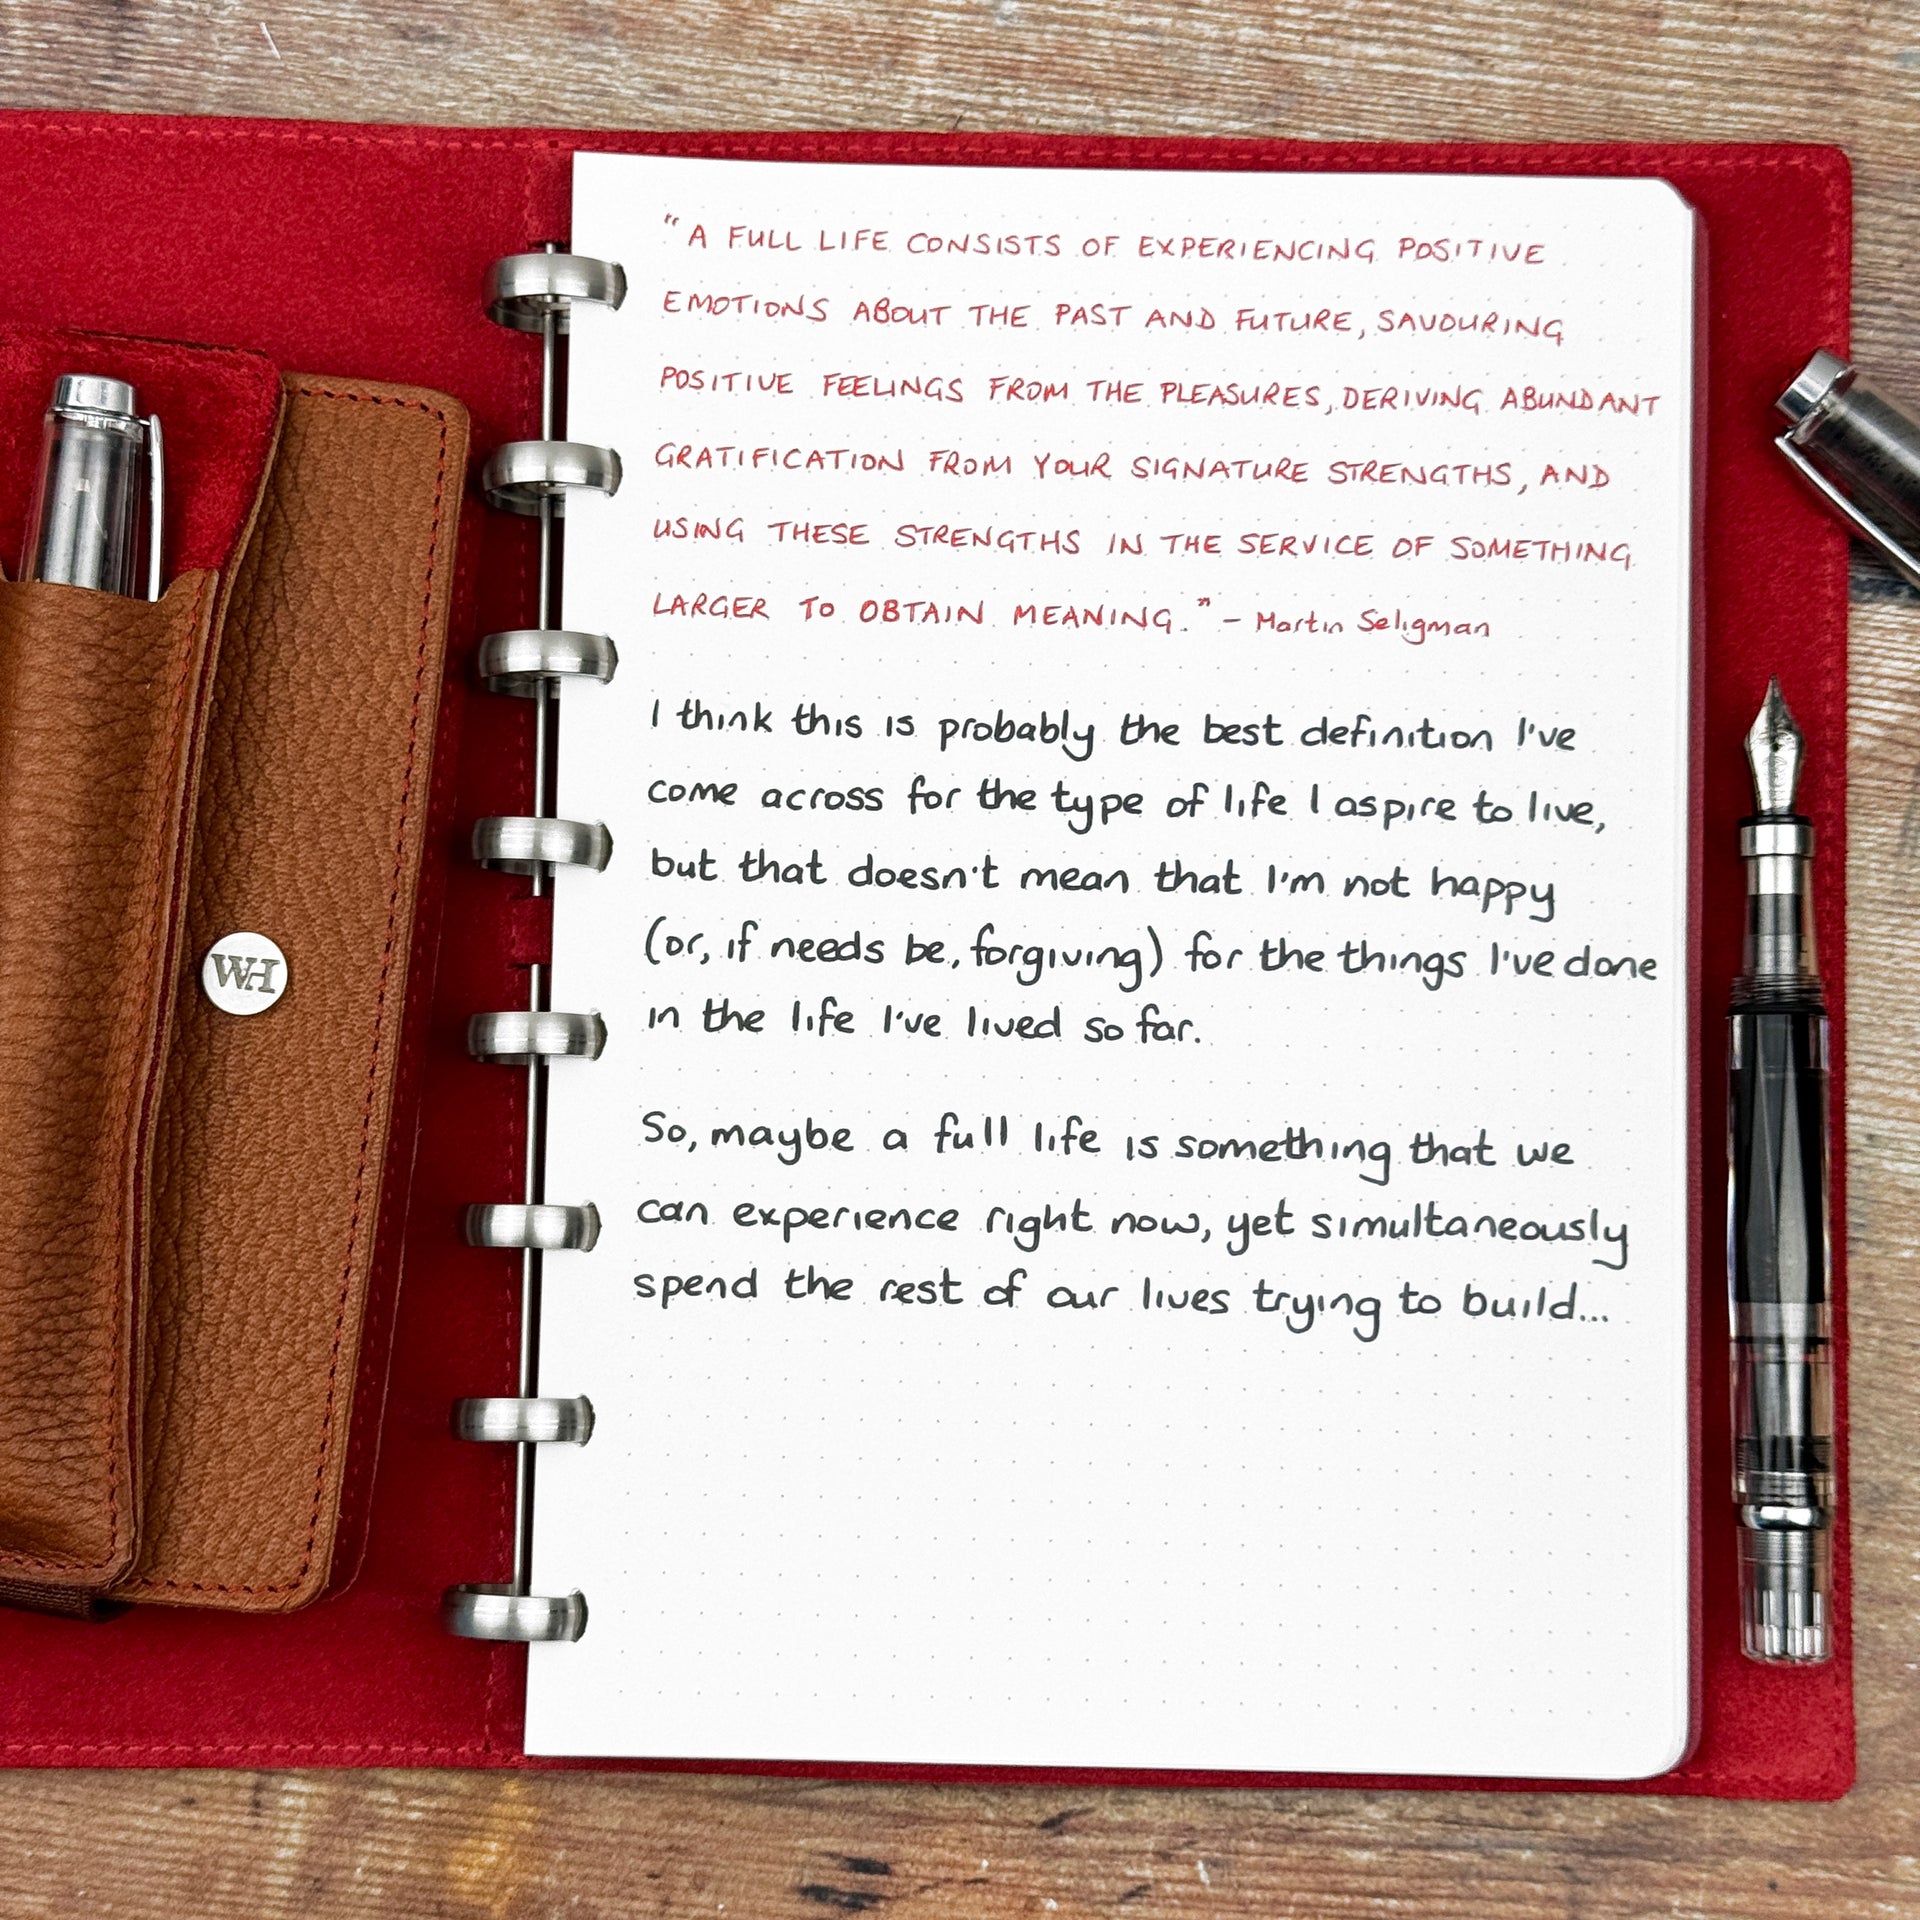 "A FULL LIFE CONSISTS OF EXPERIENCING POSITIVE
EMOTIONS ABOUT THE PAST AND FUTURE, SAVOURING
POSITIVE FEELINGS FROM THE PLEASURES, DERIVING ABUNDANT
GRATIFICATION FROM YOUR SIGNATURE STRENGTHS, AND
USING THESE STRENGTHS IN THE SERVICE OF SOMETHING
LARGER TO OBTAIN MEANING." - Martin Seligman
I think this is probably the best definition I've
come across for the type of life I aspire to live,
but that doesn't mean that I'm not happy
(or, if needs be, forgiving) for the things I've done
in the life I've lived so far.
So, maybe a full life is something that we
can experience right now, yet simultaneously
spend the rest of our lives trying to build...
WH